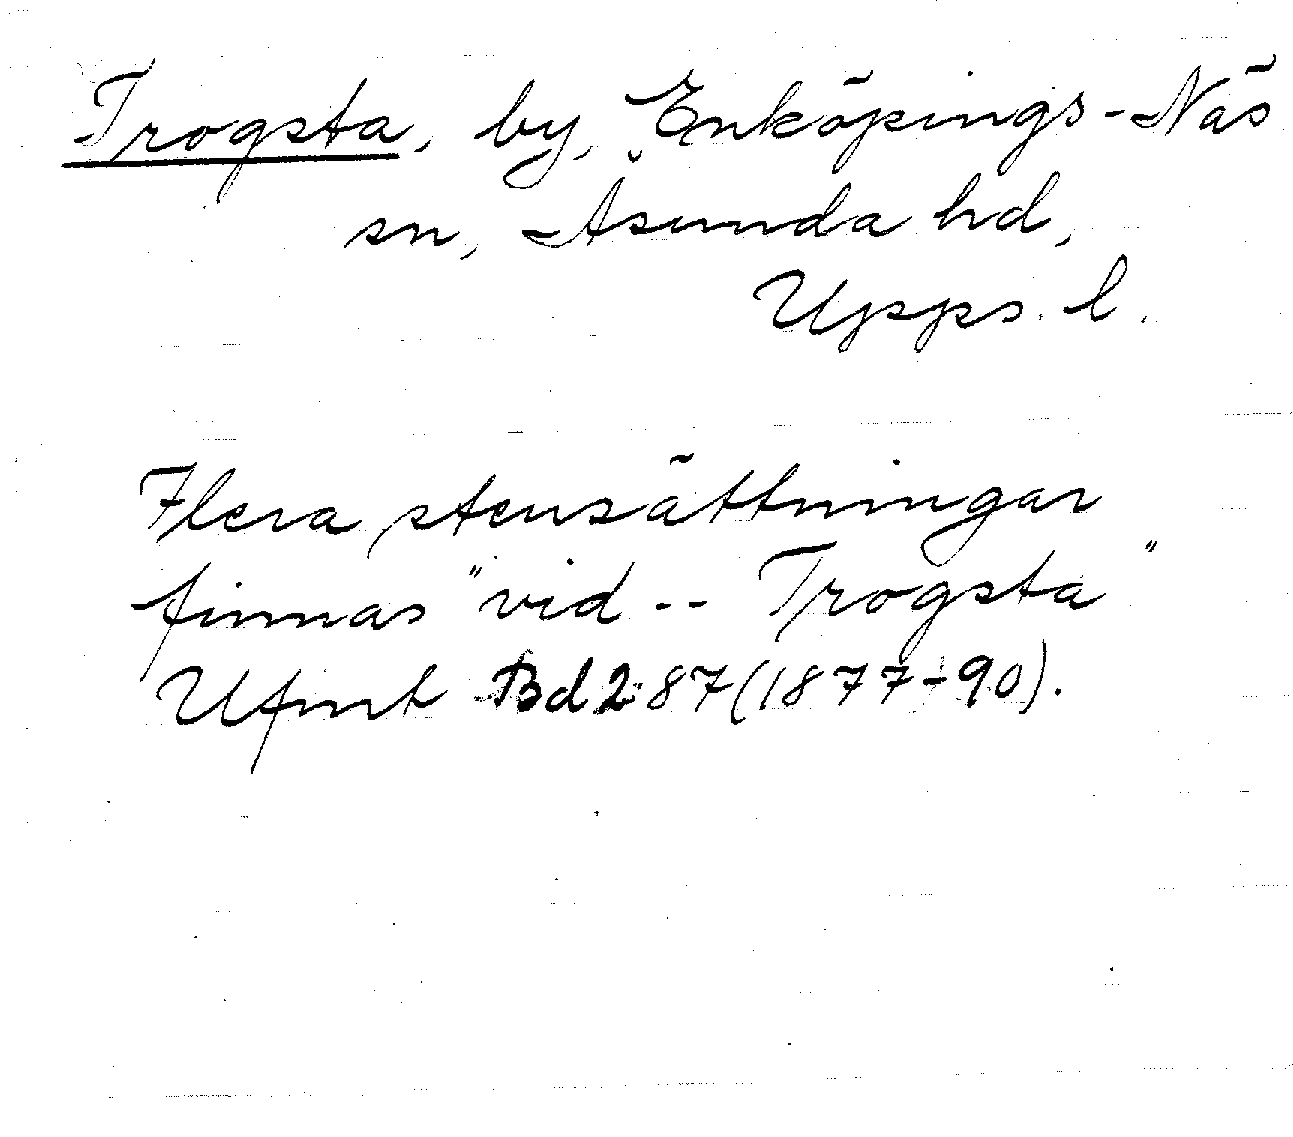 Trogsta, by, Enköpings-Näs
sn, Åsunda hd,
Upps. l.
Flera stensättningar
finnas "vid -- Trogsta"
Ufmt Bd 2:87 (1877-90).